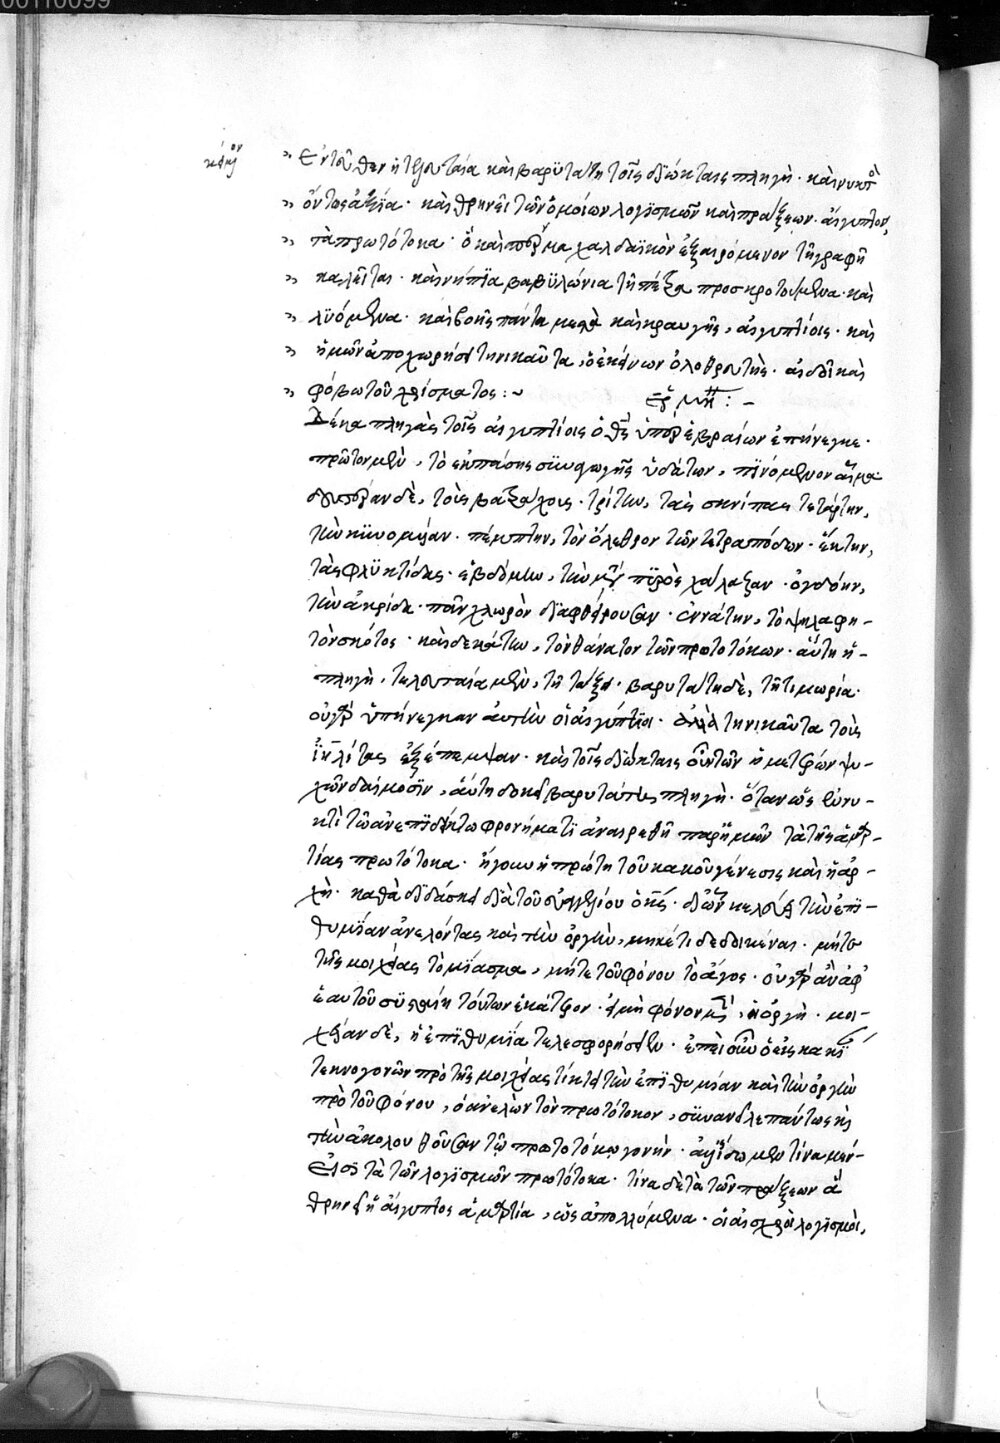 00110099
κείμενον
Ἐντεῦθεν ἡ τελευταία καὶ βαρυτάτη τοῖς διώκταις πληγὴ· καὶ νυκτὸς
ὄντως ἀξία· καὶ θρηνεῖ τῶν ὁμοίων λογισμῶν καὶ πράξεων αἴγυπτος,
τὰ πρωτότοκα· ὃ καὶ σπέρμα χαλδαϊκὸν ἐξαιρόμενον τῇ γραφῇ
καλεῖται· καὶ νήπια βαβυλώνια τῇ πέτρᾳ προσκροτούμενα· καὶ
λυόμενα· καὶ βοῆς πάντα μεστὰ καὶ κραυγῆς, αἰγυπτίοις· καὶ
ἡμῶν ἀποχωρήσει τηνικαῦτα, ὁ ἐκείνων ὀλοθρευτὴς· αἰδοῖ καὶ
φόβῳ τοῦ χρίσματος :~ ἑρμη :–
Δέκα πληγὰς τοῖς αἰγυπτίοις ὁ θς ὑπὲρ ἑβραίων ἐπήνεγκε·
πρῶτον μὲν, τὸ ἐκ πάσης συναγωγῆς ὑδάτων, πινόμενον αἷμα·
δευτέραν δὲ, τοὺς βατράχους· τρίτην, τὰς σκνίπας τετάρτην,
τὴν κυνομυίαν· πέμπτην, τὸν ὄλεθρον τῶν τετραπόδων· ἕκτην,
τὰς φλυκτίδας· ἑβδόμην, τὴν μετὰ πυρὸς χάλαζαν· ὀγδόην,
τὴν ἀκρίδα· πᾶν χλωρὸν διαφθείρουσαν· ἐννάτην, τὸ ψηλαφη-
τὸν σκότος· καὶ δεκάτην, τὸν θάνατον τῶν πρωτοτόκων· αὕτη ἡ
πληγὴ, τελευταία μὲν, τῇ τάξει· βαρυτάτη δὲ, τῇ τιμωρίᾳ·
οὐ γὰρ ὑπήνεγκαν αὐτὴν οἱ αἰγύπτιοι· ἀλλὰ τηνικαῦτα τοὺς
ἰηλίτας ἐξέπεμψαν· καὶ τοῖς διώκταις οὖν τῶν ἡμετέρων ψυ-
χῶν δαίμοσιν, αὕτη δοκεῖ βαρυτάτη πληγὴ· ὅταν ὡς ἐν νυ-
κτὶ τῷ ἀνεπιδείκτῳ φρονήματι ἀναιρεθῇ παρ' ἡμῶν τὰ τῆς ἁμαρ-
τίας πρωτότοκα· ἤγουν ἡ πρώτη τοῦ κακοῦ γένεσις καὶ ἡ ἀρ-
χὴ· καθὰ διδάσκει διὰ τοῦ εὐαγγελίου ὁ κς· δι' ὧν κελεύει τὴν ἐπι-
θυμίαν ἀνελόντας καὶ τὴν ὀργὴν, μηκέτι δεδοικέναι· μήτε
τῆς μοιχείας τὸ μίασμα, μήτε τοῦ φόνου τὸ ἄγος· οὐ γὰρ ἂν ἀφ'
ἑαυτοῦ συσταίη τούτων ἑκάτερον· εἰ μὴ φόνον μὲν, ἡ ὀργὴ· μοι-
χείαν δὲ, ἡ ἐπιθυμία τελεσφορήσειεν· ἐπεὶ οὖν ὁ εἰς κακίαν
τεκνογονῶν πρὸ τῆς μοιχείας τίκτει τὴν ἐπιθυμίαν καὶ τὴν ὀργὴν
πρὸ τοῦ φόνου, ὁ ἀνελὼν τὸν πρωτότοκον, συνανεῖλε πάντως καὶ
τὴν ἀκολουθοῦσαν τῷ πρωτοτόκῳ γονήν· ἀλλ' ἴδωμεν τίνα μέν
εἰσι τὰ τῶν λογισμῶν πρωτότοκα· τίνα δὲ τὰ τῶν πράξεων ἃ
θρηνεῖ ἡ αἴγυπτος ἁμαρτία, ὡς ἀπολλύμενα· οἱ αἰσχροὶ λογισμοὶ,